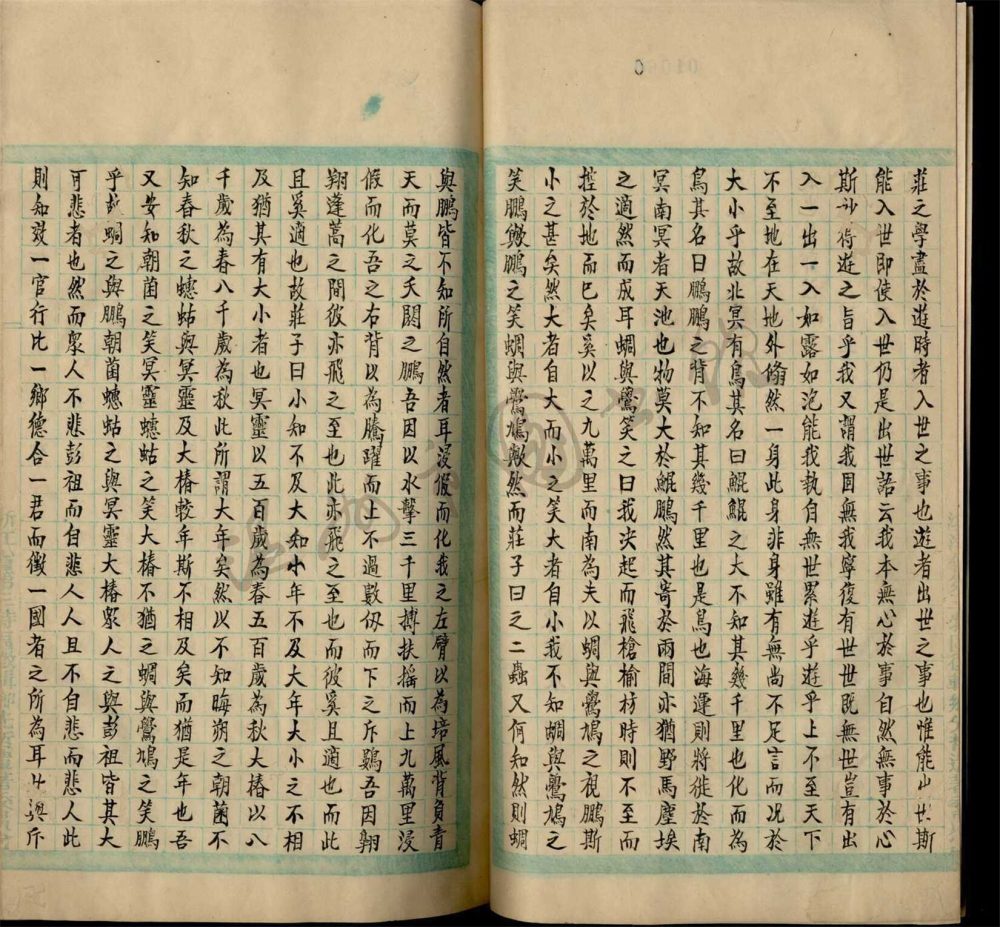 莊之學盡於遊時者入世之事也遊者出世之事也惟能出世斯
能入世即使入世仍是出世語云我本無心於事自然無事於心
斯得遊之旨乎我又謂我因無我寧復有世世既無世豈有出
入一出一入如露如泡能我執自無世累遊乎遊乎上不至天下
不至地在天地外翛然一身此身非身雖有無尚不足言而況於
大小乎故北冥有鳥其名曰鯤鯤之大不知其幾千里也化而為
鳥其名曰鵬鵬之背不知其幾千里也是鳥也海運則將徙於南
冥南冥者天池也物莫大於鯤鵬然其寄於兩間亦猶野馬塵埃
之適然而成耳蜩與鷽笑之曰我決起而飛槍榆枋時則不至而
控於地而已矣奚以之九萬里而南為夫以蜩與鷽鳩之視鵬斯
小之甚矣然大者自大而小之笑大者自小我不知蜩與鷽鳩之
笑鵬歟鵬之笑蜩與鷽鳩歟然而莊子曰之二蟲又何知然則蜩
與鵬皆不知所自然者耳浸假而化我之左臂以為培風背負青
天而莫之夭閼之鵬吾因以水擊三千里搏扶搖而上九萬里浸
假而化吾之右背以為騰躍而上不過數仞而下之斥鷃吾因翱
翔蓬蒿之間彼亦飛之至也此亦飛之至也而彼奚且適也而此
且奚適也故莊子曰小知不及大知小年不及大年大小之不相
及猶其有大小者也冥靈以五百歲為春五百歲為秋大椿以八
千歲為春八千歲為秋此所謂大年矣然以不知晦朔之朝菌不
知春秋之蟪蛄與冥靈及大椿較年斯不相及矣而猶是年也吾
又安知朝菌之笑冥靈蟪蛄之笑大椿不猶之蜩與鷽鳩之笑鵬
乎故蜩之與鵬朝菌蟪蛄之與冥靈大椿眾人之與彭祖皆其大
可悲者也然而眾人不悲彭祖而自悲人人且不自悲而悲人此
則知效一官行比一鄉德合一君而徵一國者之所為耳斥